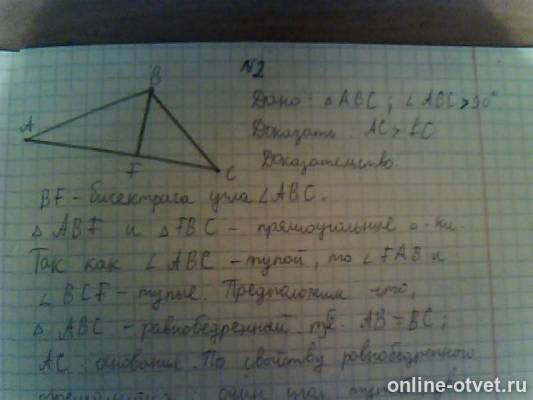 №2
B
Дано: △ABC; ∠ABC>90°
A
Доказать AC>BC
F
C
Доказательство.
BF - бисектриса угла ∠ABC.
△ABF и △FBC - прямоугольные
Так как ∠ABC - тупой, то ∠FAB и
∠BCF - тупые. Предположим что,
△ABC - равнобедренный, AB=BC;
AC основание. По свойству равнобедренного
один угол
online-otvet.ru